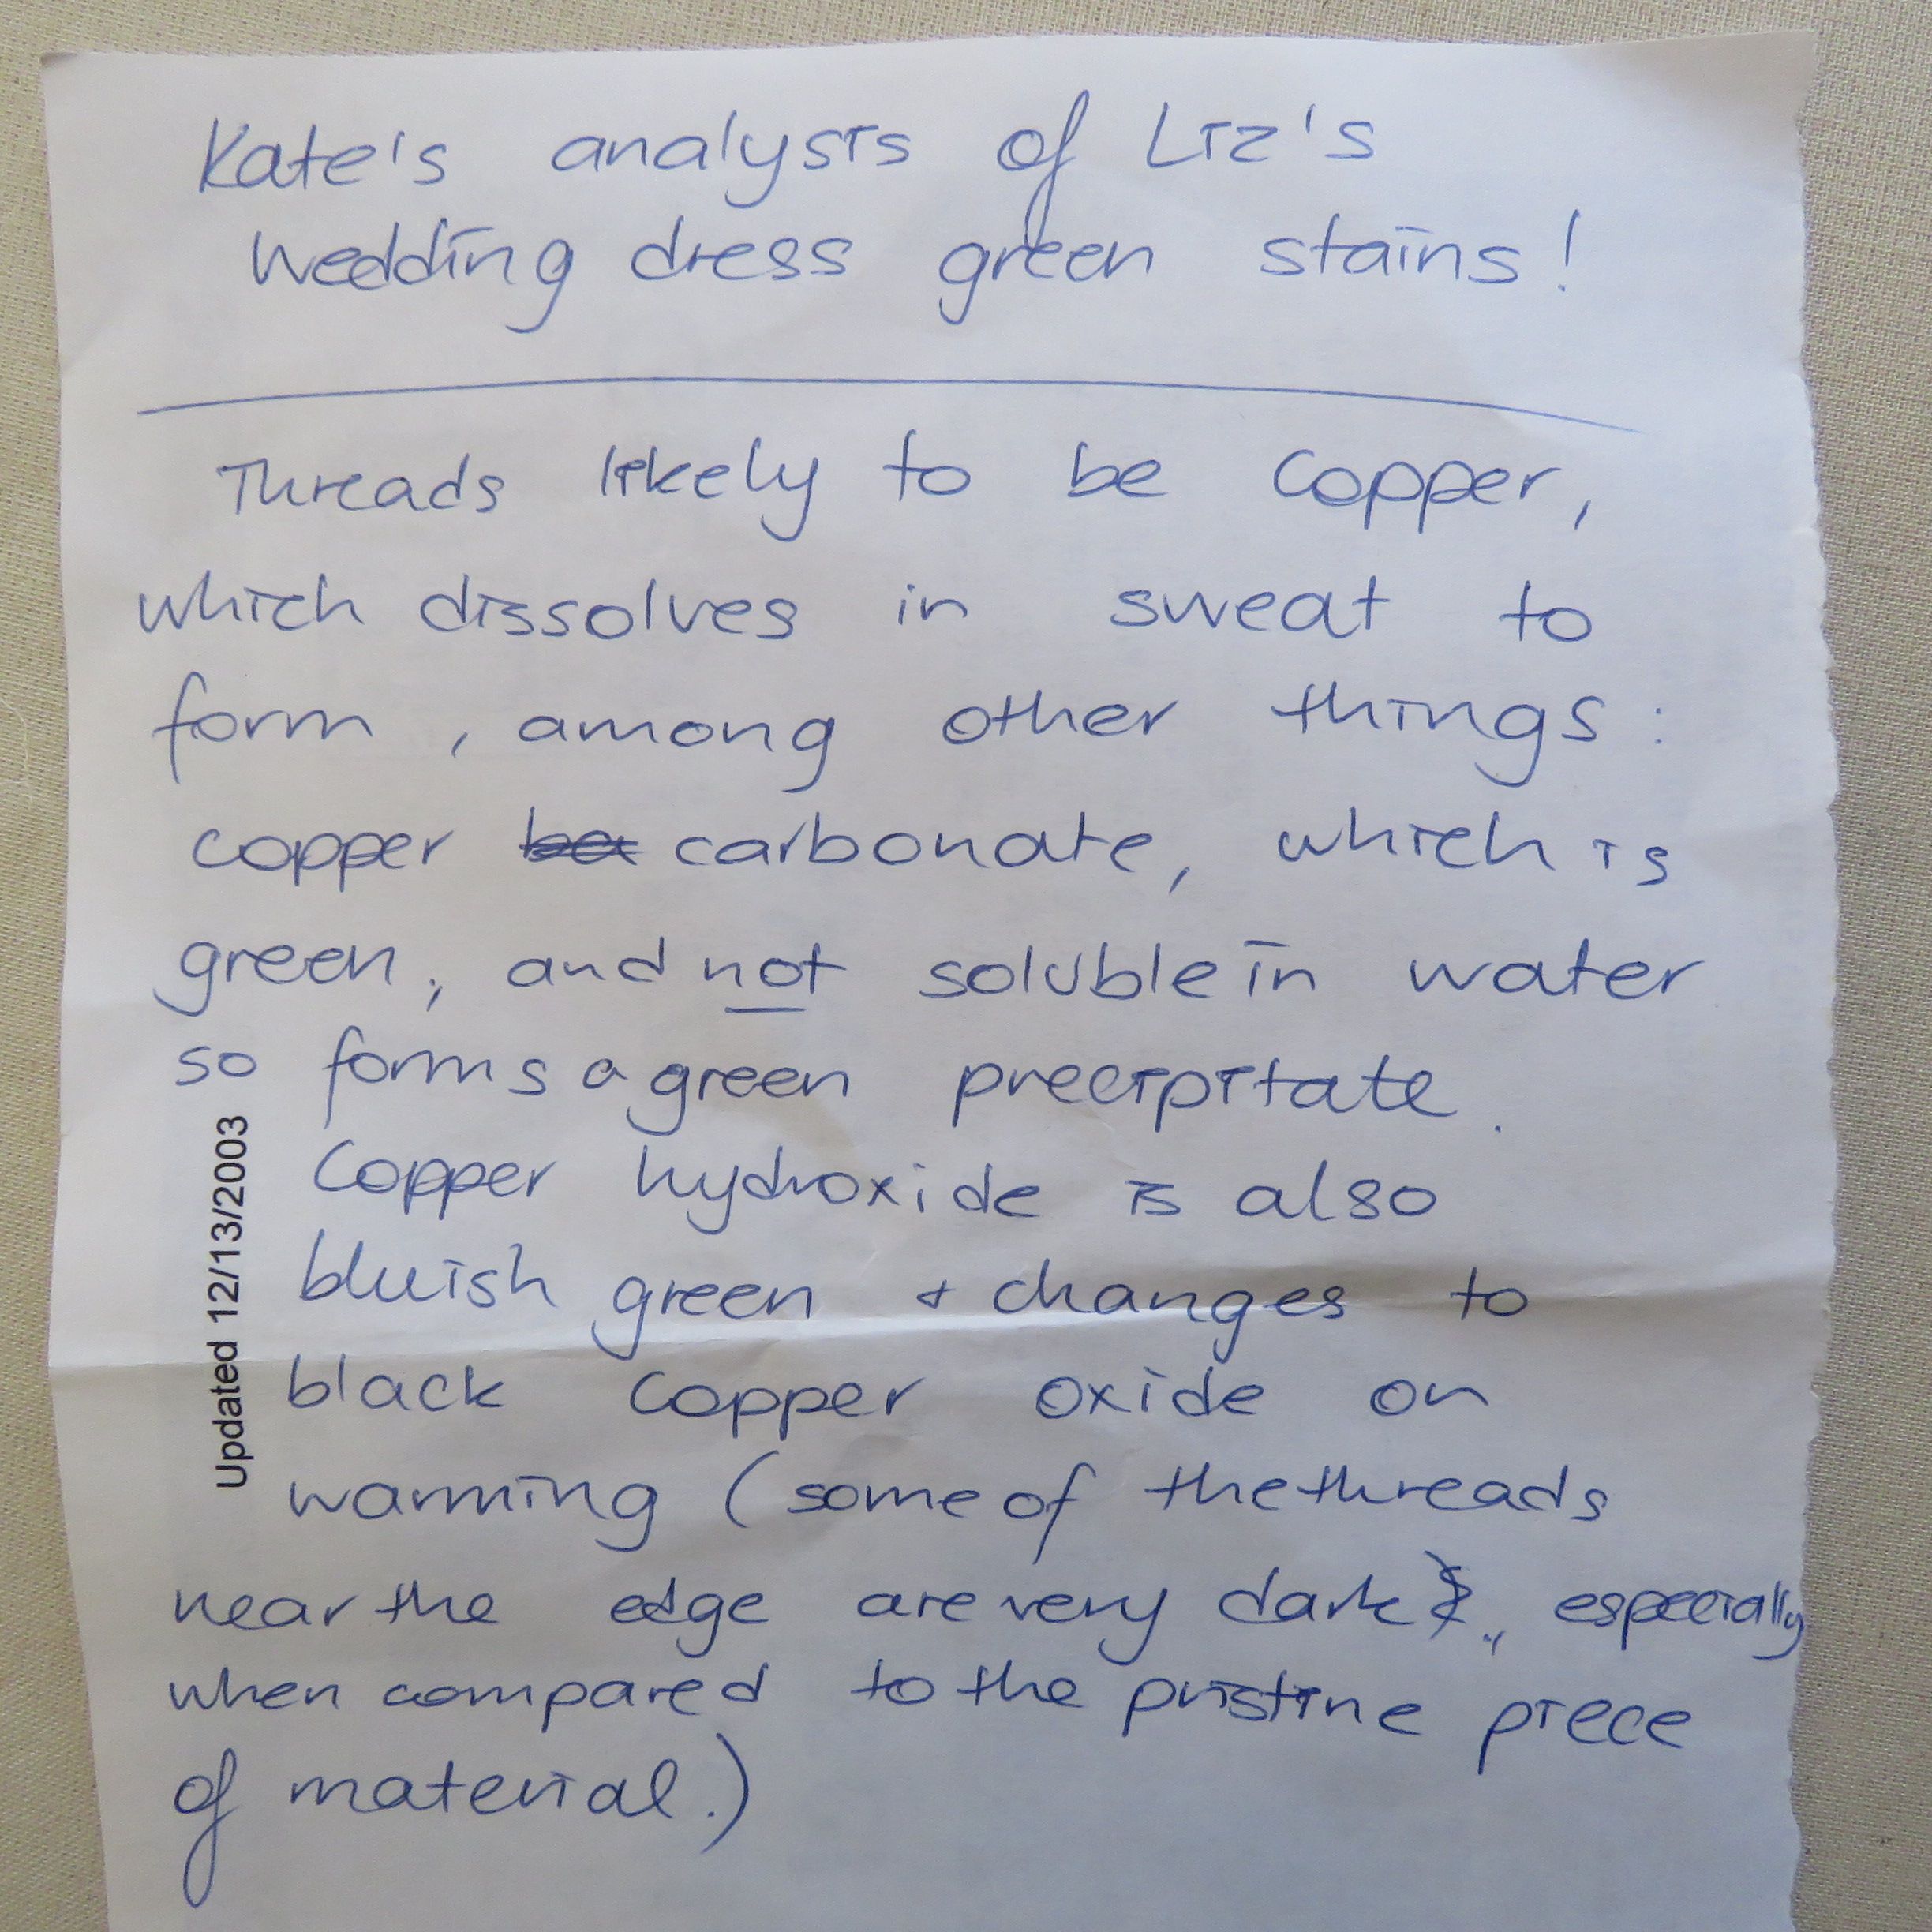 Kate's analysis of Liz's
wedding dress green stains!
Threads likely to be copper,
which dissolves in sweat to
form, among other things:
copper carbonate, which is
green, and not soluble in water
so forms a green precipitate.
Copper hydroxide is also
bluish green + changes to
black copper oxide on
warming (some of the threads
near the edge are very dark, especially
when compared to the pristine piece
of material.)
Updated 12/13/2003